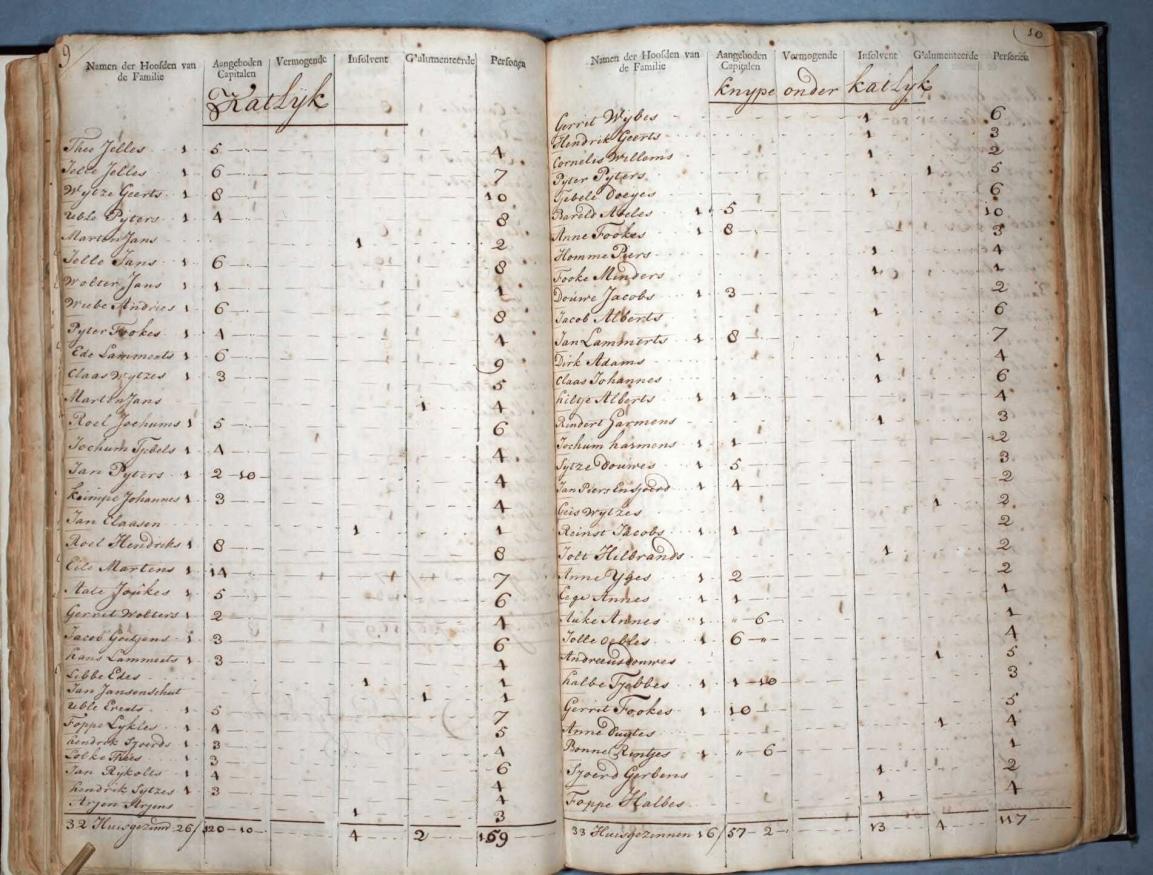 9
Namen der Hoofden van de Familie Aangeboden Capitalen Vermogende Insolvent G'alumenteerde Personen
Katlyk
Thee Jelles 1 5 4
Jelle Jelles 1 6 7
Wytze Geerts 1 8 10
Uble Pyters 1 4 8
Marten Jans 1 2
Jelle Jans 1 6 8
Wolter Jans 1 1 1
Wiebe Andries 1 6 8
Pyter Fookes 1 4 4
Ede Lammerts 1 6 9
Claas Wytzes 1 3 5
Marten Jans 1 4
Roel Jochums 1 5 6
Jochum Tjebels 1 4 4
Jan Pyters 1 2 - 10 4
Keimpe Johannes 1 3 4
Jan Claasen 1 1
Roel Hendriks 1 8 8
Eile Martens 1 14 7
Aale Joukes 1 5 6
Gerrit Wolters 1 2 4
Jacob Goitjens 1 3 6
Hans Lammerts 1 3 4
Libbe Edes 1 1
Jan Jansenschut 1 1
Uble Everts 1 5 7
Foppe Lykles 1 4 5
Hendrik Sjoerds 1 3 4
Lobke Thees 1 3 6
Jan Rykolts 1 4 4
Hendrik Sytzes 1 3 4
Arjen Arjens 1 3
32 Huisgezind 26/120 - 10 4 2 169
10
Namen der Hoofden van de Familie Aangeboden Capitalen Vermogende Insolvent G'alumenteerde Personen
Knype onder Katlyk
Gerrit Wybes 1 6
Hendrik Geerts 1 3
Cornelis Willems 1 2
Pyter Pyters 1 5
Tjebele Doeyes 1 6
Bareld Abeles 1 5 10
Anne Fookes 1 8 3
Homme Piers 1 4
Fooke Minders 1 1
Douwe Jacobs 1 3 2
Jacob Alberts 1 6
Jan Lammerts 1 8 7
Dirk Adams 1 4
Claas Johannes 1 6
Hiltje Alberts 1 1 4
Rindert Harmens 1 3
Jochum Harmens 1 1 2
Sytze Douwes 1 5 3
Jan Piers En Sjoerd 1 4 2
Geis Wytzes 1 2
Reinst Jacobs 1 1 2
Jolt Hilbrands 1 2
Anne Yges 1 2 2
Lege Annes 1 1 1
Auke Annes 1 " 6 1
Jolle Oebles 1 6 - " 4
Andreas Douwes 1 5
Halbe Tjebbes 1 1 - 10 3
Gerrit Fookes 1 10 5
Anne 1 4
Bonne Rintjes 1 " - 6 1
Sjoerd Gerbens 1 2
Foppe Halbes 1 4
33 Huisgezinnen 16/57 - 2 13 4 117